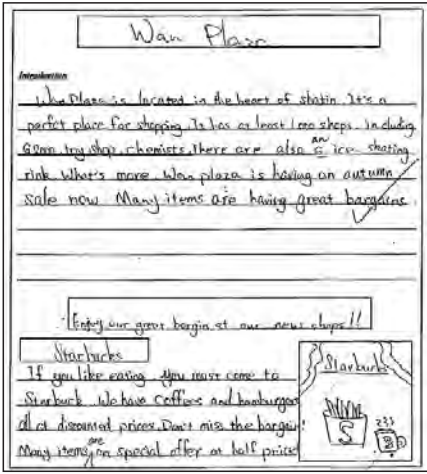 Wan Plaza
Introduction
Wan Plaza is located in the heart of shatin. It's a
perfct place for shopping. It has at least 1000 shops. Including
toy shop, chemists, there are also an ice skating
rink. What's more. Wan plaza is having an autumn
sale now. Many items are having great bargains.
Enjoy our great bargin at our new shops!!
Starbucks
If you like eating, you must come to
Starbuck. We have Coffees and hamburgers
all at discounted prices. Don't miss the bargain
Many items are on special offer at half price!
Starbuck
S